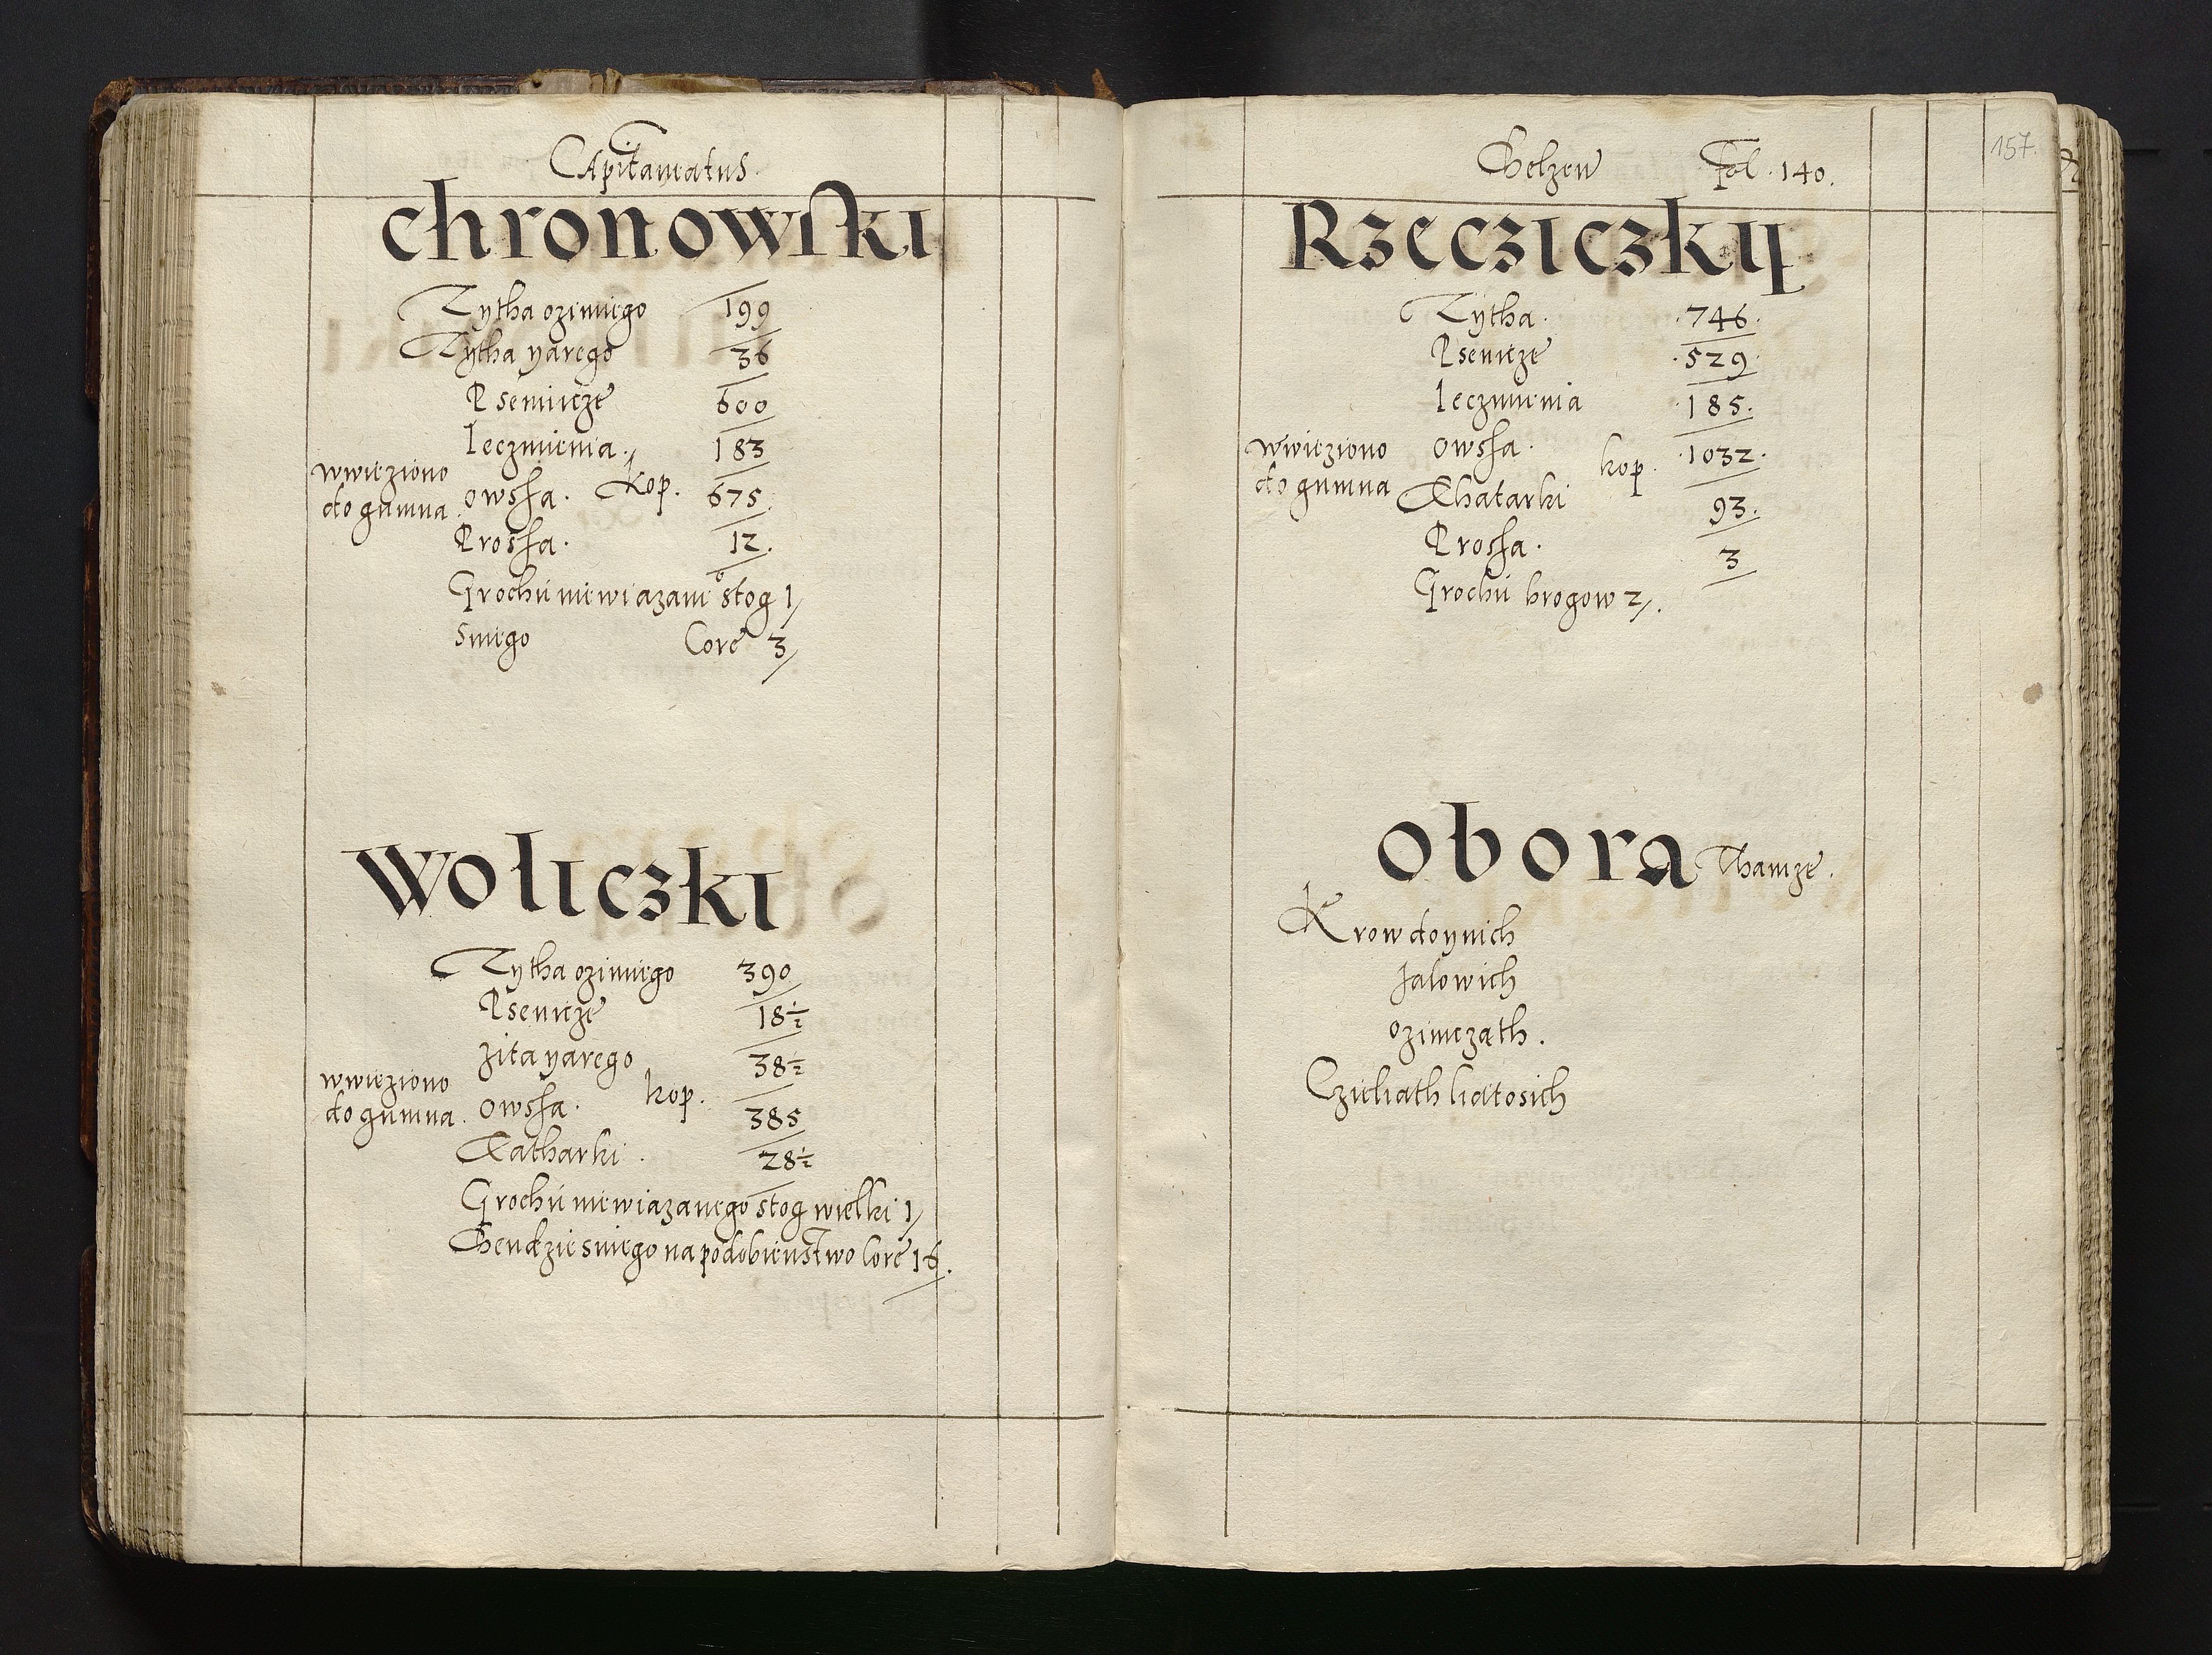 Capitaneatus
chronowski
Zytha ozimiego 199
Zytha yarego 36
Psenicze 600
Ieczmienia 183
wwieziono do gumna owssa. kop. 675
Prossa. 12.
Grochu niewiazane° stog 1
Sniego Core 3
Woliczki
Zytha ozimiego 390
Psenicze 18½
Zita yarego 38½
wwieziono do gumna. owssa. kop. 385
Tatharki. 28½
Grochu niewiazanego stog wielki 1
Bendzie sniego na podobienstwo Core 16.
Belzen Fol. 140.
157.
Rzecziczky
Zytha. 746.
Psenicze 529
Ieczmienia 185.
wwieziono do gumna owssa. kop. 1032.
Thatarki 93.
Prossa. 3
Grochu brogow 2.
obora Thamze.
Krow doynich
Jalowich
ozimczath.
Czieliath liatosich